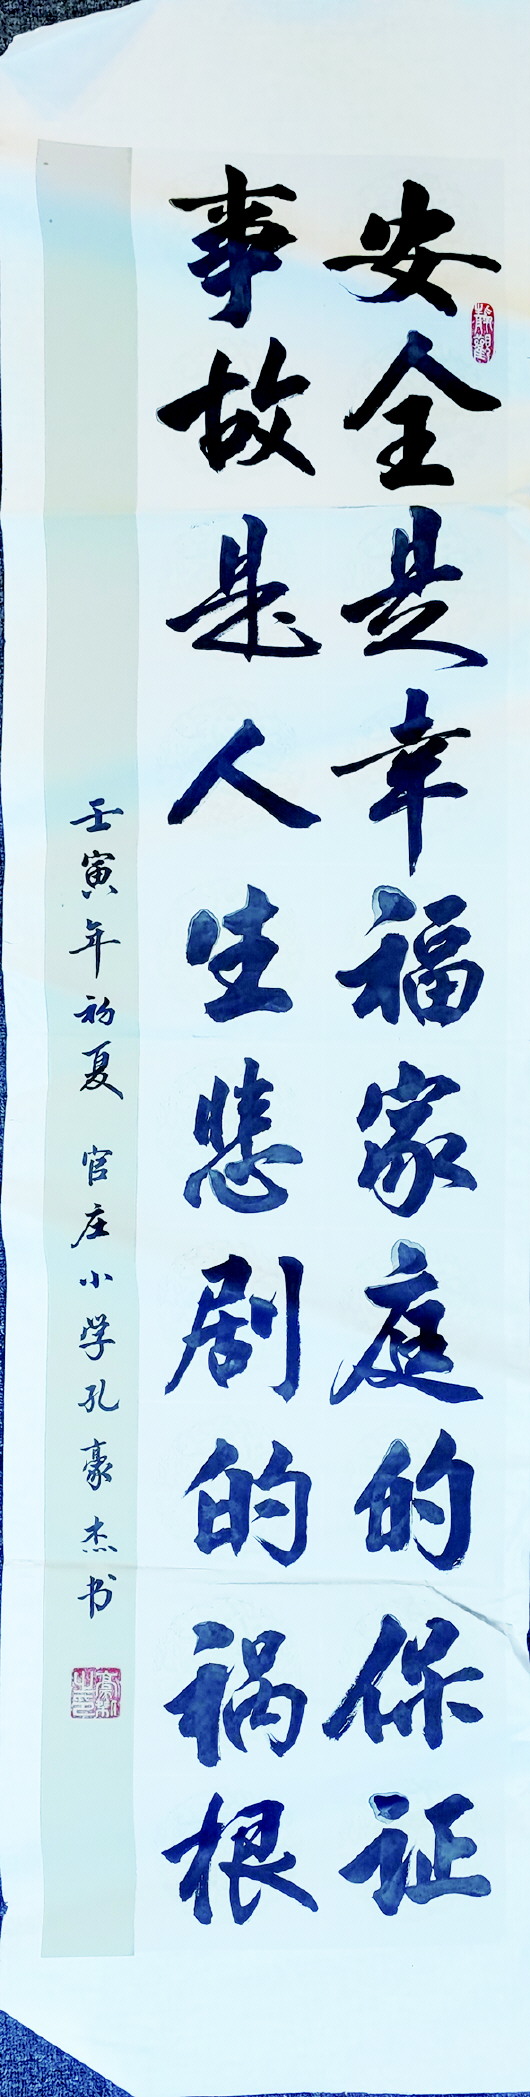 安全是幸福家庭的保证
事故是人生悲剧的祸根
壬寅年初夏 官庄小学孔豪杰书